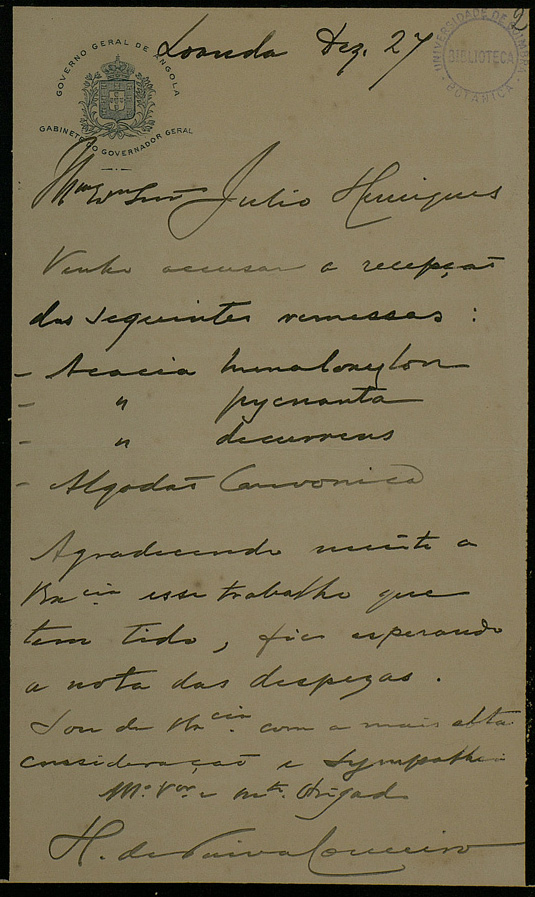 2
UNIVERSIDADE DE COIMBRA
BIBLIOTECA
BOTANICA
GOVERNO GERAL DE ANGOLA
GABINETE DO GOVERNADOR GERAL
Loanda Dez. 27
Julio Henriques
Venho accusar a recepção
das seguintes remessas :
- Acacia
- " pycnanta
- " decurrens
- Algodão Caravonica
Agradecendo muito a
V. Ex.cia esse trabalho que
tem tido, fico esperando
a nota das despezas.
Sou de V. Ex.cia com a mais alta
consideração e sympathia
M.to Obrigado
H. de Paiva Couceiro